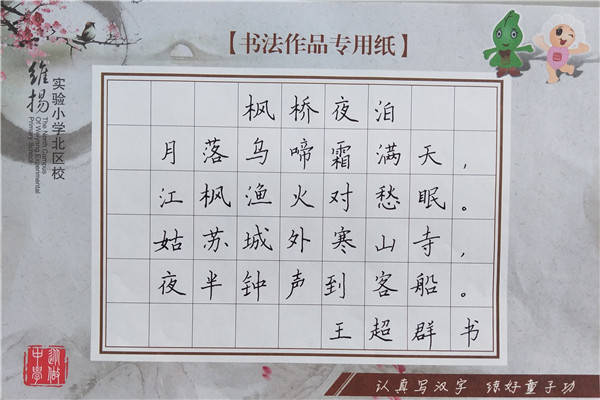 【书法作品专用纸】
維揚
实验小学北区校
The North Campus
Of Weiyang Experimental
Primary School
枫桥夜泊
月落乌啼霜满天，
江枫渔火对愁眠。
姑苏城外寒山寺，
夜半钟声到客船。
王超群书
认真写汉字 练好童子功